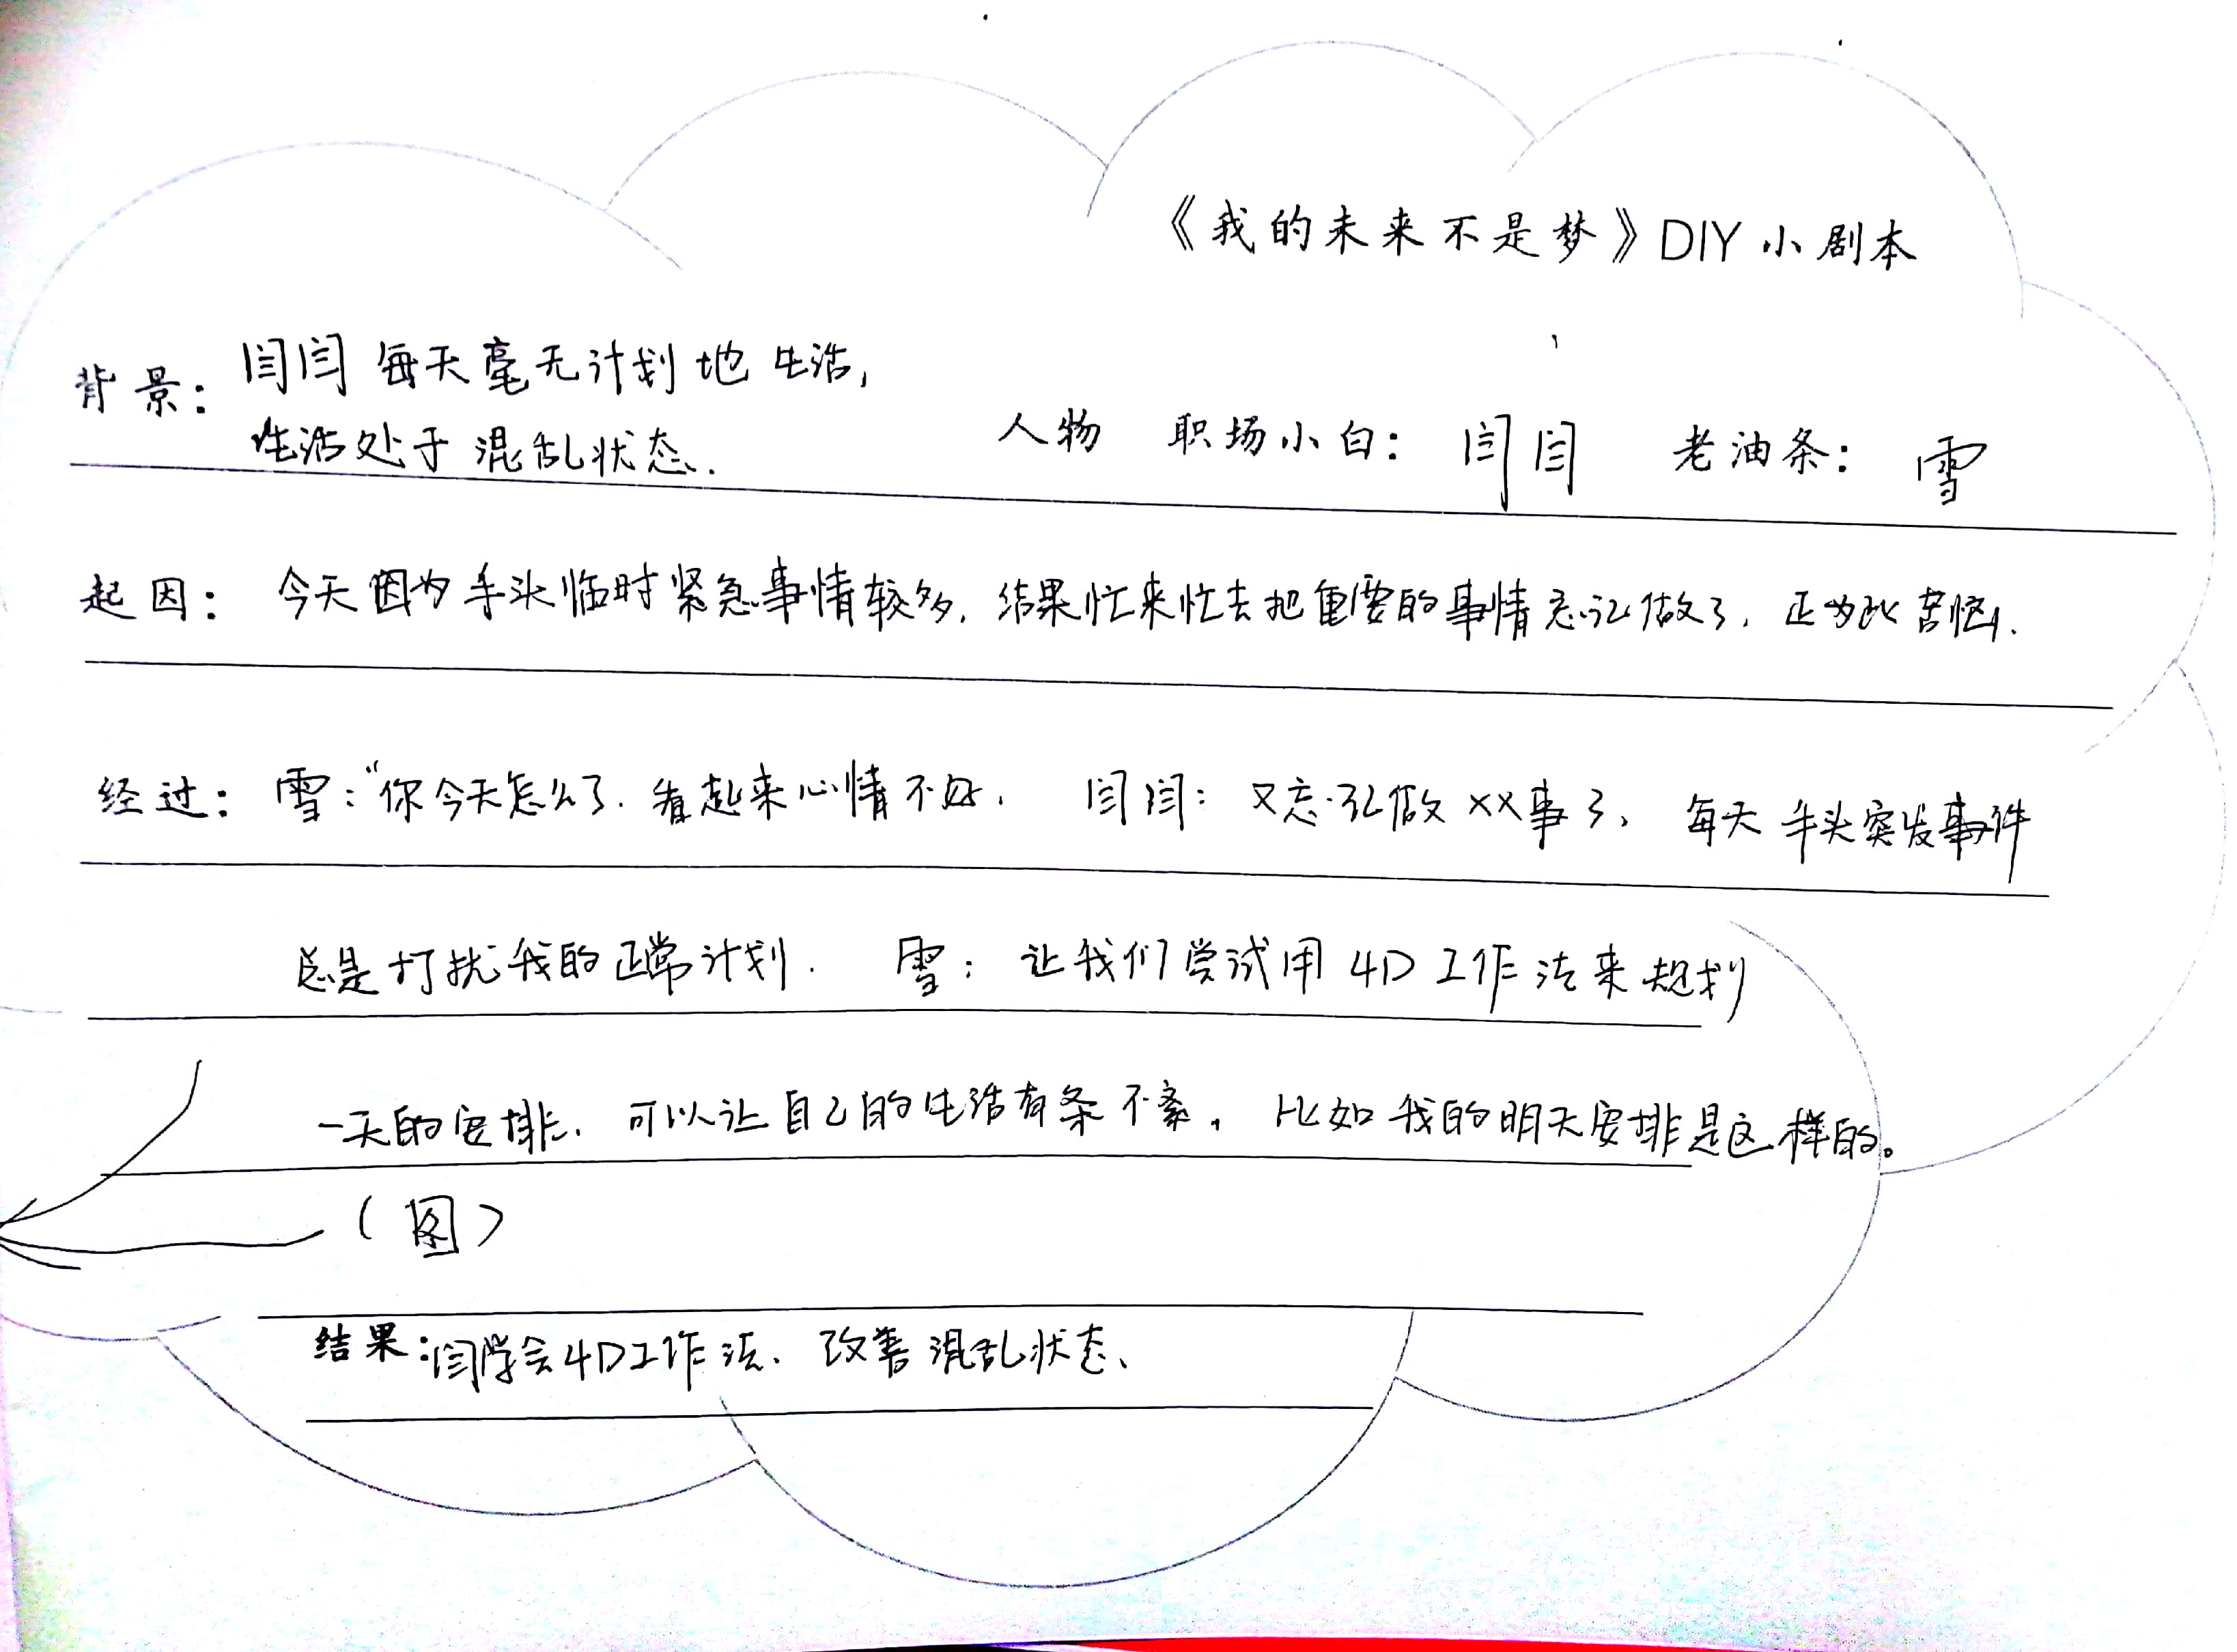 《我的未来不是梦》DIY 小剧本
背景：闫闫 每天毫无计划地生活，
生活处于混乱状态.
人物 职场小白：闫闫 老油条：雪
起因：今天因为手头临时紧急事情较多，结果忙来忙去把重要的事情忘记做了，正为此苦恼.
经过：雪：“你今天怎么了.看起来心情不好. 闫闫：又忘记做××事了、每天手头突发事件
总是打扰我的正常计划. 雪：让我们尝试用4D工作法来规划
一天的安排、可以让自己的生活有条不紊。比如我的明天安排是这样的。
（图）
结果：闫学会4D工作法、改善混乱状态、